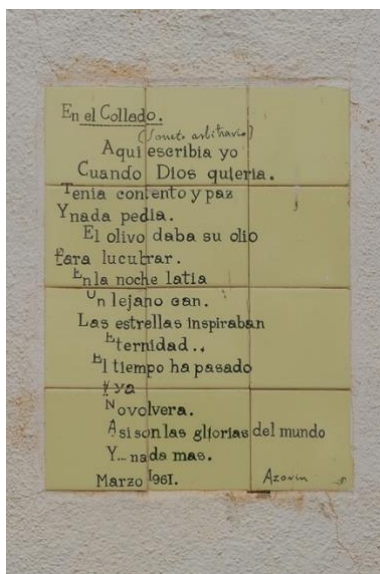 En el Collado.
(Soneto arbitrario)
Aqui escribia yo
Cuando Dios queria.
Tenia contento y paz
Y nada pedia.
El olivo daba su olio
Para lucubrar.
En la noche latia
Un lejano can.
Las estrellas inspiraban
Eternidad..
El tiempo ha pasado
Y ya
No volvera.
Asi son las glorias del mundo
Y... nada mas.
Marzo 1961. Azorin